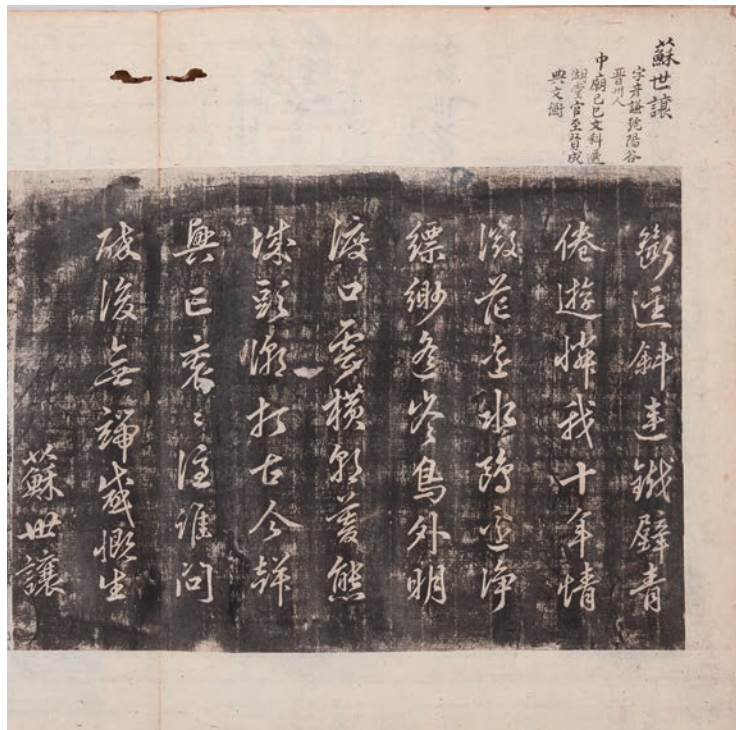 蘇世讓
字彦謙號陽谷
晋州人
中廟己巳文科選
湖堂官至贊成
典文衡
逕斜連鐵壁青
倦遊憐我十年情
微茫遠水鷗邊淨
縹緲遙岑鳥外明
渡口雲橫朝暮態
城頭潮打古今聲
興亡衮〻憑誰問
醉後無端感慨生
蘇世讓